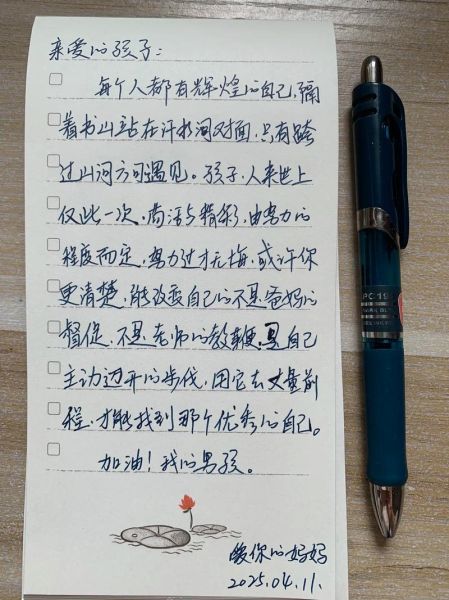 亲爱的孩子:
每个人都有辉煌的自己,隔
着书山,站在汗水河对面,只有跨
过山河方可遇见。孩子,人来世上
仅此一次,苟活与精彩,由努力的
程度而定,努力过才无悔,或许你
更清楚,能改变自己的不是爸妈的
督促,不是老师的教鞭,是自己
主动迈开的步伐,用它去丈量前
程,才能找到那个优秀的自己。
加油!我的男孩。
爱你的妈妈
2025.04.11.